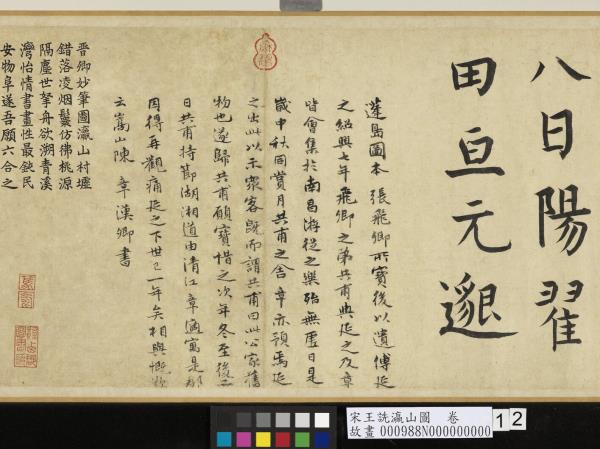 八日陽翟
田亘元邈
蓬島圖本張飛卿所寳後以遺傅延
之紹興七年飛卿之弟共甫與延之及章
皆會集於南昌游從之樂殆無虛日是
歲中秋同賞月共甫之舍章亦預焉延
之出此以示衆客既而謂共甫曰此公家舊
物也遂歸共甫願寳惜之次年冬至後二
日共甫持節湖湘道由清江章適寓是郡
因得再觀痛延之下世已一年矣相與慨歎
云嵩山陳章漢卿書
晉卿妙筆圖瀛山村墟
錯落凌烟鬟仿彿桃源
隔塵世拏舟欲溯青溪
灣怡情書畫性最鈌民
安物阜遂吾願六合之
宋王詵瀛山圖 卷
故畫 000988N000000000
12